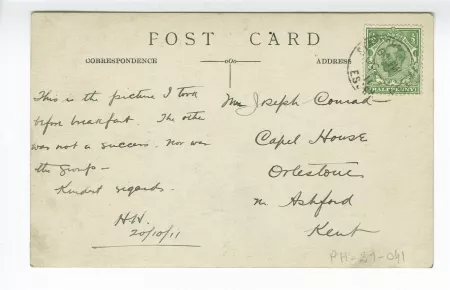 POST CARD
CORRESPONDENCE
ADDRESS
HALFPENNY
This is the picture I took
before breakfast. The other
was not a success. Nor was
the group –
Kindest regards –
H.H.
20/10/11
Mrs Joseph Conrad
Capel House
Orlestone
nr Ashford
Kent
PH-21-041